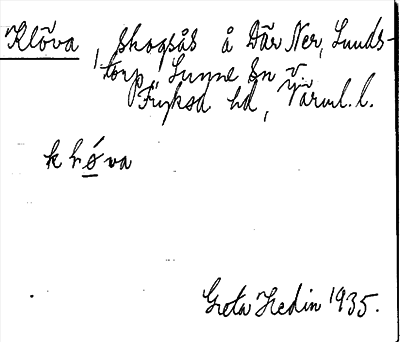 Klöva, skogsås å Där Ner, Lunds-
torp, Sunne sn
Fryksd. hd, Värml. l.
klóva
Greta Hedin 1935.